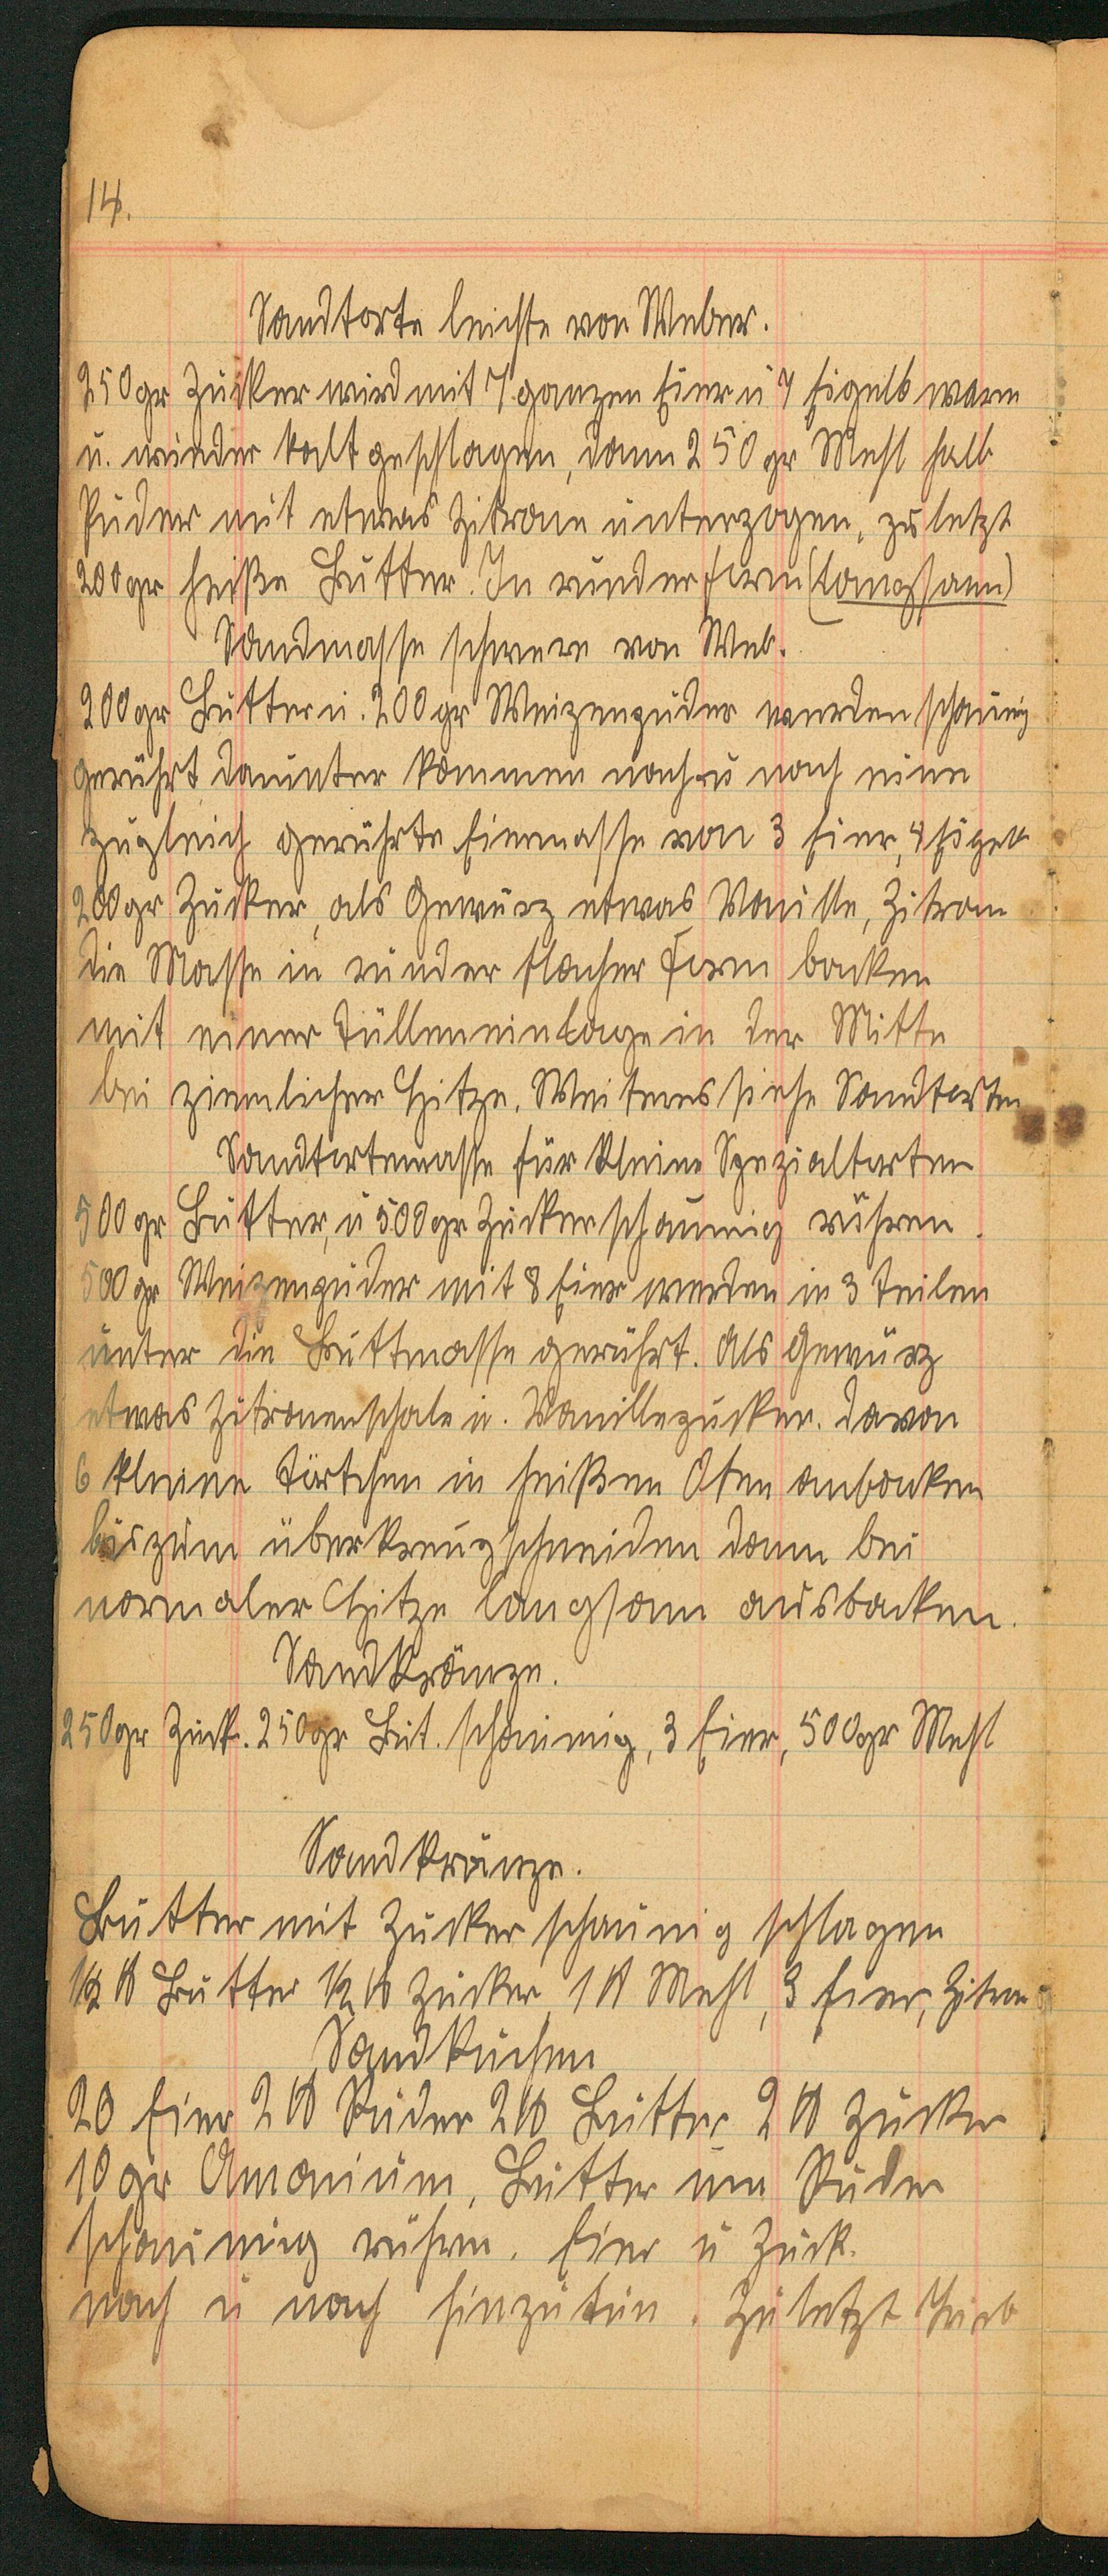 14.
Sandtorte leichte von Weber.
250gr Zucker wird mit 7 ganzen Eier u 7 Eigelb warm
u. wieder kalt geschlagen, dann 250 gr Mehl halb
Puder mit etwas Zitrone unterzogen, zuletzt
200gr heiße Butter. In runder Form (langsam)
Sandmasse schwere von Web.
200gr Butter u. 200gr Weizenpuder werden schaumig
gerührt darunter kommen nach u nach eine
zugleich gerührte Eiermasse von 3 Eier, 4 Eigelb
200gr Zucker, als Gewürz etwas Vanille, Zitron
die Masse in runder flacher Form backen
mit einer Tülleneinlage in der Mitte
bei ziemlicher Hitze. Weiteres siehe Sandtorten
Sandtortenmasse für kleine Spezialtorten
500gr Butter, u 500gr Zucker schaumig rühren.
500gr Weizenpuder mit 8 Eier werden in 3 Teilen
unter die Buttmasse gerührt. Als Gewürz
etwas Zitronenschale u. Vanillezucker. Davon
6 kleine Törtchen in heißen Ofen anbacken
bis zum überkreuzschneiden dann bei
normaler Hitze langsam ausbacken.
Sandkränze.
250gr Zuck. 250gr But. schaumig, 3 Eier, 500gr Mehl
Sandkränze.
Butter mit Zucker schaumig schlagen
1/2 ℔ Butter 1/2 ℔ Zucker, 1 ℔ Mehl, 3 Eier, Zitron
Sandkuchen
20 Eier 2 ℔ Puder 2 ℔ Butter 2 ℔ Zucker
10gr Amonium, Butter um Puder
schaumig rühren. Eier u Zuck.
nach u nach hinzutun. Zuletzt Trieb